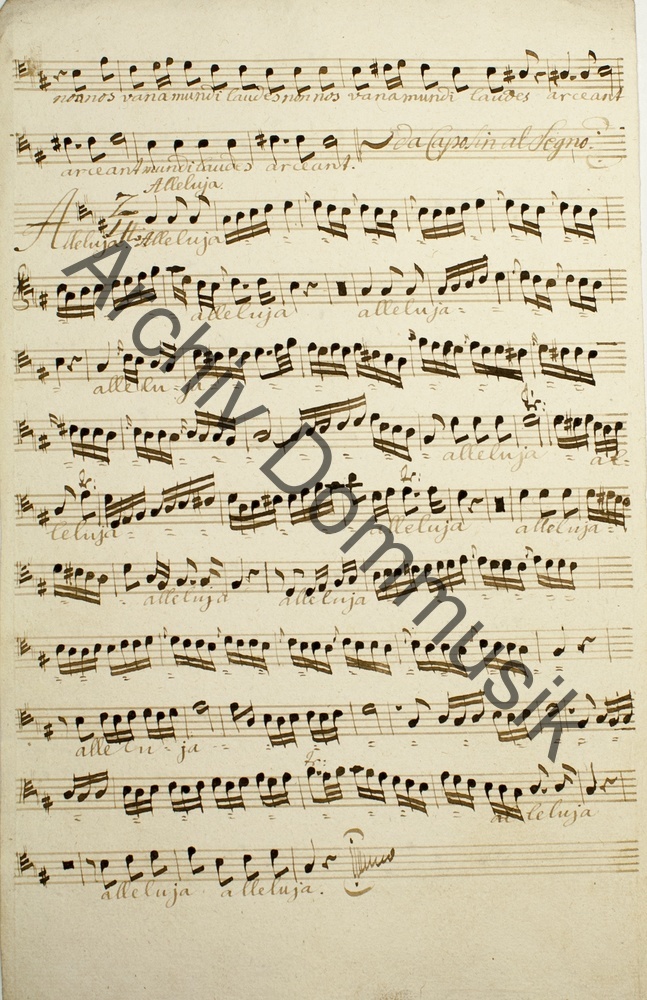 non nos vana mundi laudes non nos vana mundi laudes arceant
arceant mundi laudes arceant. da Capo fin al Segno.
Alleluja.
Alleluja
alleluja alleluja
alleluja
tr:
alleluja al-
tr: tr:
leluja alleluja alleluja
alleluja alleluja
alleluja
tr:
alleluja
alleluja alleluja.
Archiv Dommusik